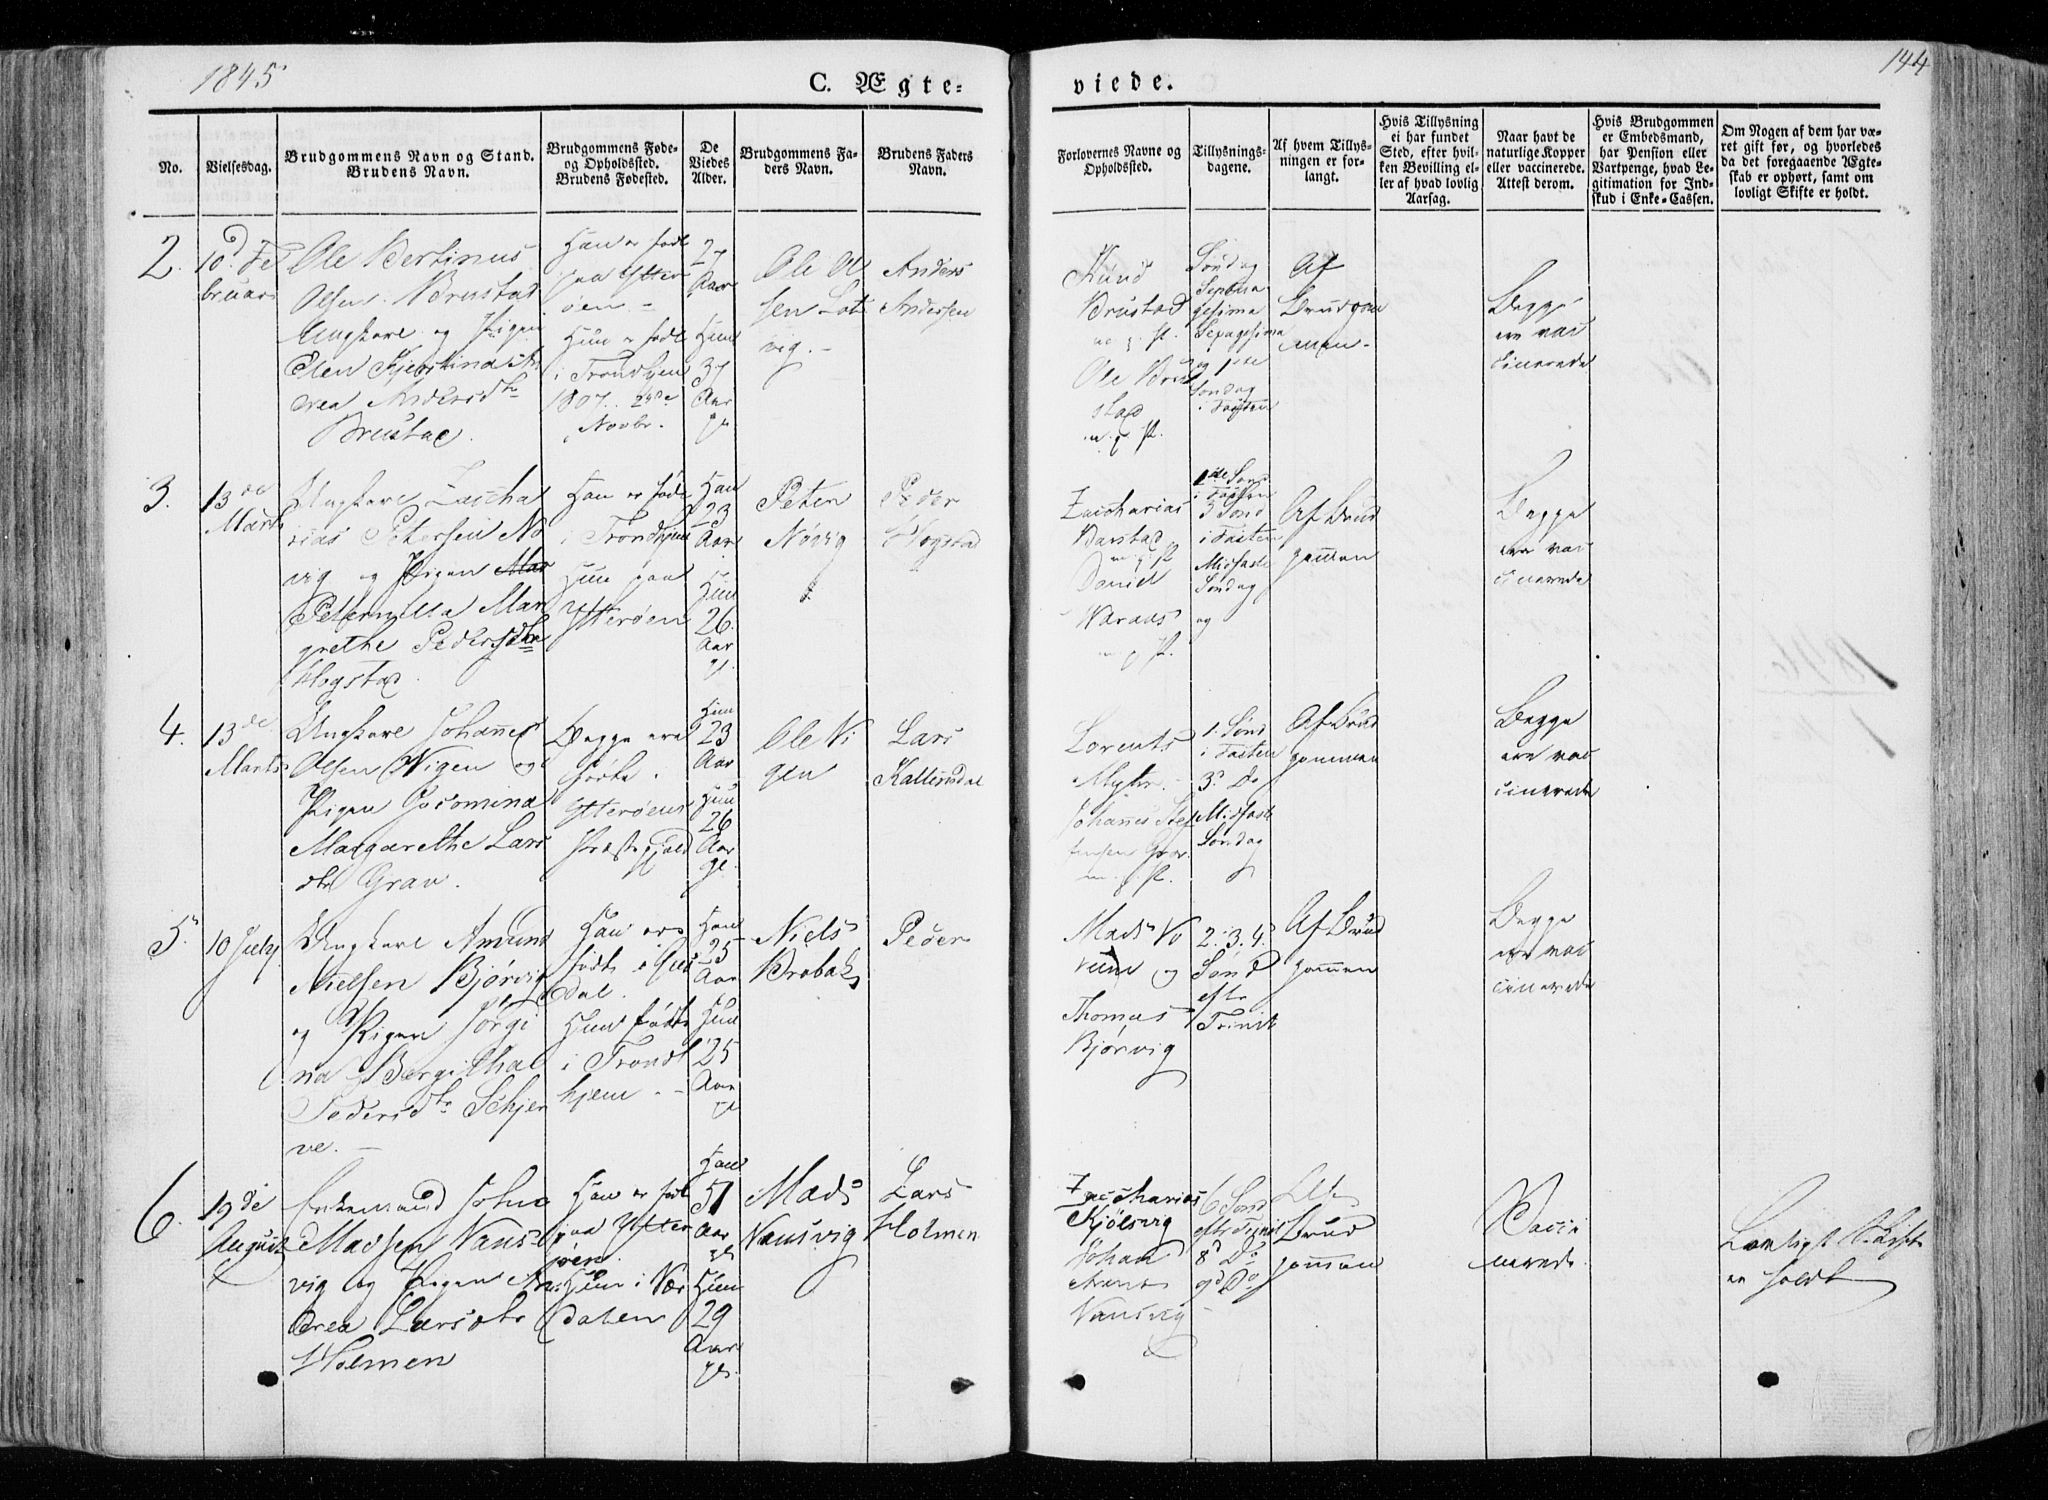 1845
C. Ægte-
viede.
144
No.
Vielsesdag.
Brudgommens Navn og Stand.
Brudens Navn.
Brudgommens Føde-
og Opholdssted.
Brudens Fødested.
De
Viedes
Alder.
Brudgommens Fa-
ders Navn.
Brudens Faders
Navn.
Forlovernes Navne og
Opholdssted.
Tillysnings-
dagene.
Af hvem Tillys-
ningen er for-
langt.
Hvis Tillysning
ei har fundet
Sted, efter hvil-
ken Bevilling el-
ler af hvad lovlig
Aarsag.
Naar havt de
naturlige Kopper
eller vaccinerede.
Attest derom.
Hvis Brudgommen
er Embedsmand,
har Pension eller
Vartpenge, hvad Le-
gitimation for Ind-
skud i Enke-Cassen.
Om Nogen af dem har væ-
ret gift før, og hvorledes
da det foregaaende Ægte-
skab er ophørt, samt om
lovligt Skifte er holdt.
2.
10d. Fe
bruar
Ole Bertinus
Olsen Brustad
Ungkarl og Pigen
Elen Kjerstina An
drea Andersdtr
Brustad.
Han er født
paa Ytter
øen.-
Hun er født
i Trondhjem
1807. 24de
Novbr.
27
Aar
Hun
37
Aar
gl
Ole Ol
sen Lot
vig.-
Anders
Andersen
Knud
Brustad
m. p. P.
Ole Bru
stad
m. p. P.
Søndag
Septua
gesima
Sexagesima
og 1ste
Søndag
i Fasten
Af
Brudgom
men-
Begge
ere vac
cinerede
3.
13de
Marts
Ungkarl Zacha
rias Petersen Nø
vig og Pigen Mar
Petternilla Mar
grethe Pedersdtr
Hogstad.
Han er født
i Trondhjem
Hun paa
Ytterøen
Han
23
Aar
Hun
26.
Aar
gl.
Peten
Nøvig
Peder
Hogstad
Zacharias
Barstad
m. p. P.
Daniel
m. p. P.
1ste Sønd
i Fasten
3 Sønd
i Fasten
Midfaste
Søndag
og
Af Brud
gommen
Begge
ere vac
cinerede
4.
13de
Marts
Ungkarl Johannes
Olsen Vigen og
Pigen Jacomina
Margarethe Lars
dtr Grav.
Begge ere
fødte i
Ytterøens
Præstegjæld
23
Aar
Hun
26
Aar
gl.
Ole Vi
gen
Lars
Lorents
Myhr.
Johannes Stef
fensen Grav.
m. p. P.
1. Sønd
i Fasten
3d Do
Midfaste
Søndag
Af Brud
gommen
Begge
ere vac
cinerede
5.
10 July
Ungkarl Amund
Nielsen Bjørvig
og Pigen Jørgi
na Bergitha
Pedersdtr Schjer
ve.-
Han ere
født i Guds
dal.
Hun født
i Trond
hjem.-
Han
25
Aar
Hun
25
Aar
gl
Niels
Brobak
Peder
Mads
og
Thomas
Bjørvig
2. 3. 4.
Sønd
eftr
Trinit
Af Brud
gommen
Begge
ere vac
cinerede
6.
19de
August
Enkemand John
Madsen Vans
vig og Pigen An
drea Larsdtr
Holmen
Han er født
paa Ytter
øen.
Hun i Vær
dalen
Han
51
Aar
gl
Hun
29
Aar
gl.
Mads
Vansvig
Lars
Holmen
Zacharias
Kjölsvig
Johan
Vansvig
6 Sønd
eftr Trinit
8d Do
9d Do
Brud
gommen
Vacci
nerede.
Lovligt Skifte
er holdt